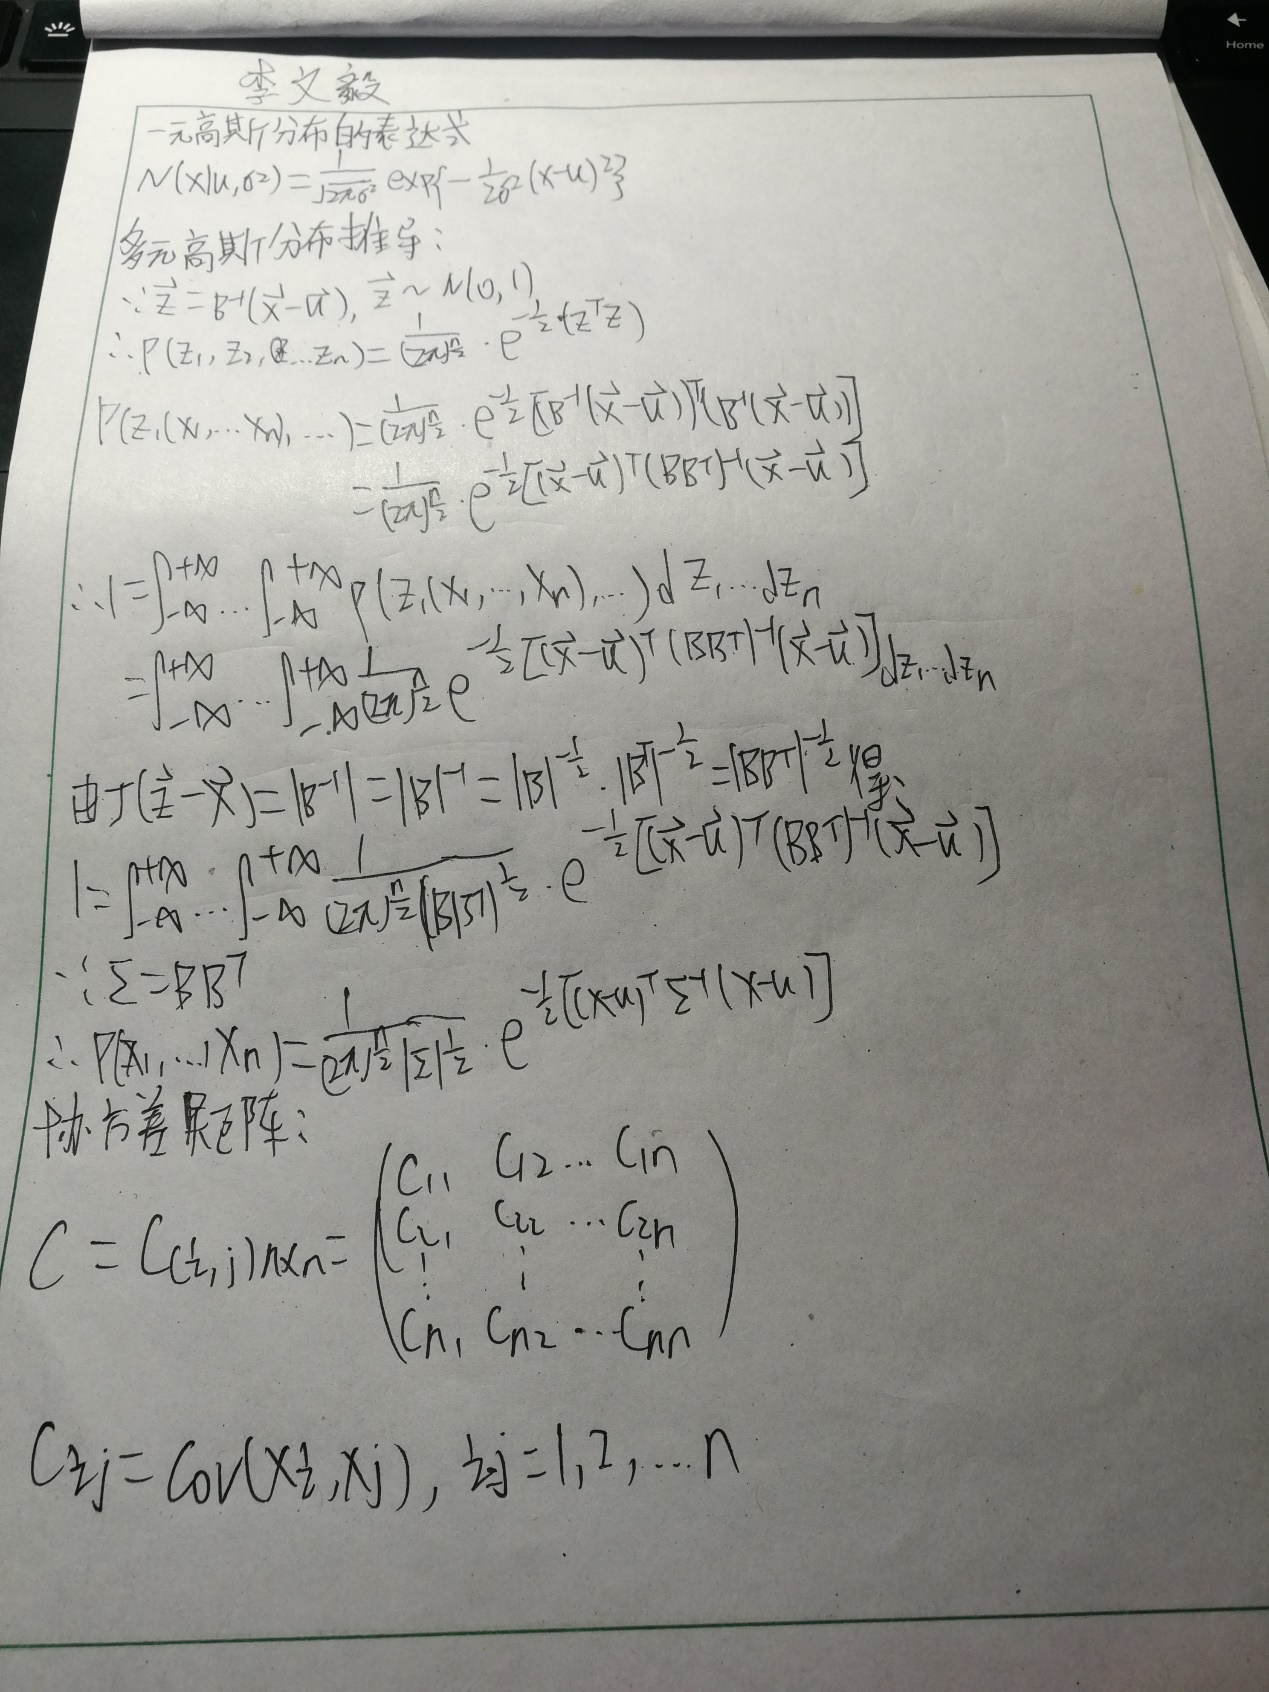 Home
李文毅
一元高斯分布的表达式
N(x|u,σ²)=1/√(2πσ²) exp{-1/(2σ²)(x-u)²}
多元高斯分布推导:
∵z⃗=B⁻¹(x⃗-u⃗), z⃗~N(0,1)
∴P(z₁,z₂,…zₙ)=1/(2π)^(n/2)·e^(-1/2·(zᵀz))
P(z₁(x₁,…xₙ),…)=1/(2π)^(n/2)·e^(-1/2[(B⁻¹(x⃗-u⃗))ᵀ(B⁻¹(x⃗-u⃗))])
=1/(2π)^(n/2)·e^(-1/2[(x⃗-u⃗)ᵀ(BBᵀ)⁻¹(x⃗-u⃗)])
∴1=∫_{-∞}^{+∞}…∫_{-∞}^{+∞} P(z₁(x₁,…,xₙ),…)dz₁…dzₙ
=∫_{-∞}^{+∞}…∫_{-∞}^{+∞} 1/(2π)^(n/2) e^(-1/2[(x⃗-u⃗)ᵀ(BBᵀ)⁻¹(x⃗-u⃗)])dz₁…dzₙ
由J(z⃗-x⃗)=|B⁻¹|=|B|⁻¹=|B|^(-1/2)·|Bᵀ|^(-1/2)=|BBᵀ|^(-1/2)得
1=∫_{-∞}^{+∞}…∫_{-∞}^{+∞} 1/((2π)^(n/2)|BBᵀ|^(1/2))·e^(-1/2[(x⃗-u⃗)ᵀ(BBᵀ)⁻¹(x⃗-u⃗)])
∵Σ=BBᵀ
∴P(x₁,…,xₙ)=1/((2π)^(n/2)|Σ|^(1/2))·e^(-1/2[(x-u)ᵀΣ⁻¹(x-u)])
协方差矩阵:
C₁₁ C₁₂ … C₁ₙ
C₂₁ C₂₂ … C₂ₙ
C=C(i,j)n×n=
⋮ ⋮ ⋮
Cₙ₁ Cₙ₂ … Cₙₙ
Cij=Cov(Xi,Xj), i,j=1,2,…n